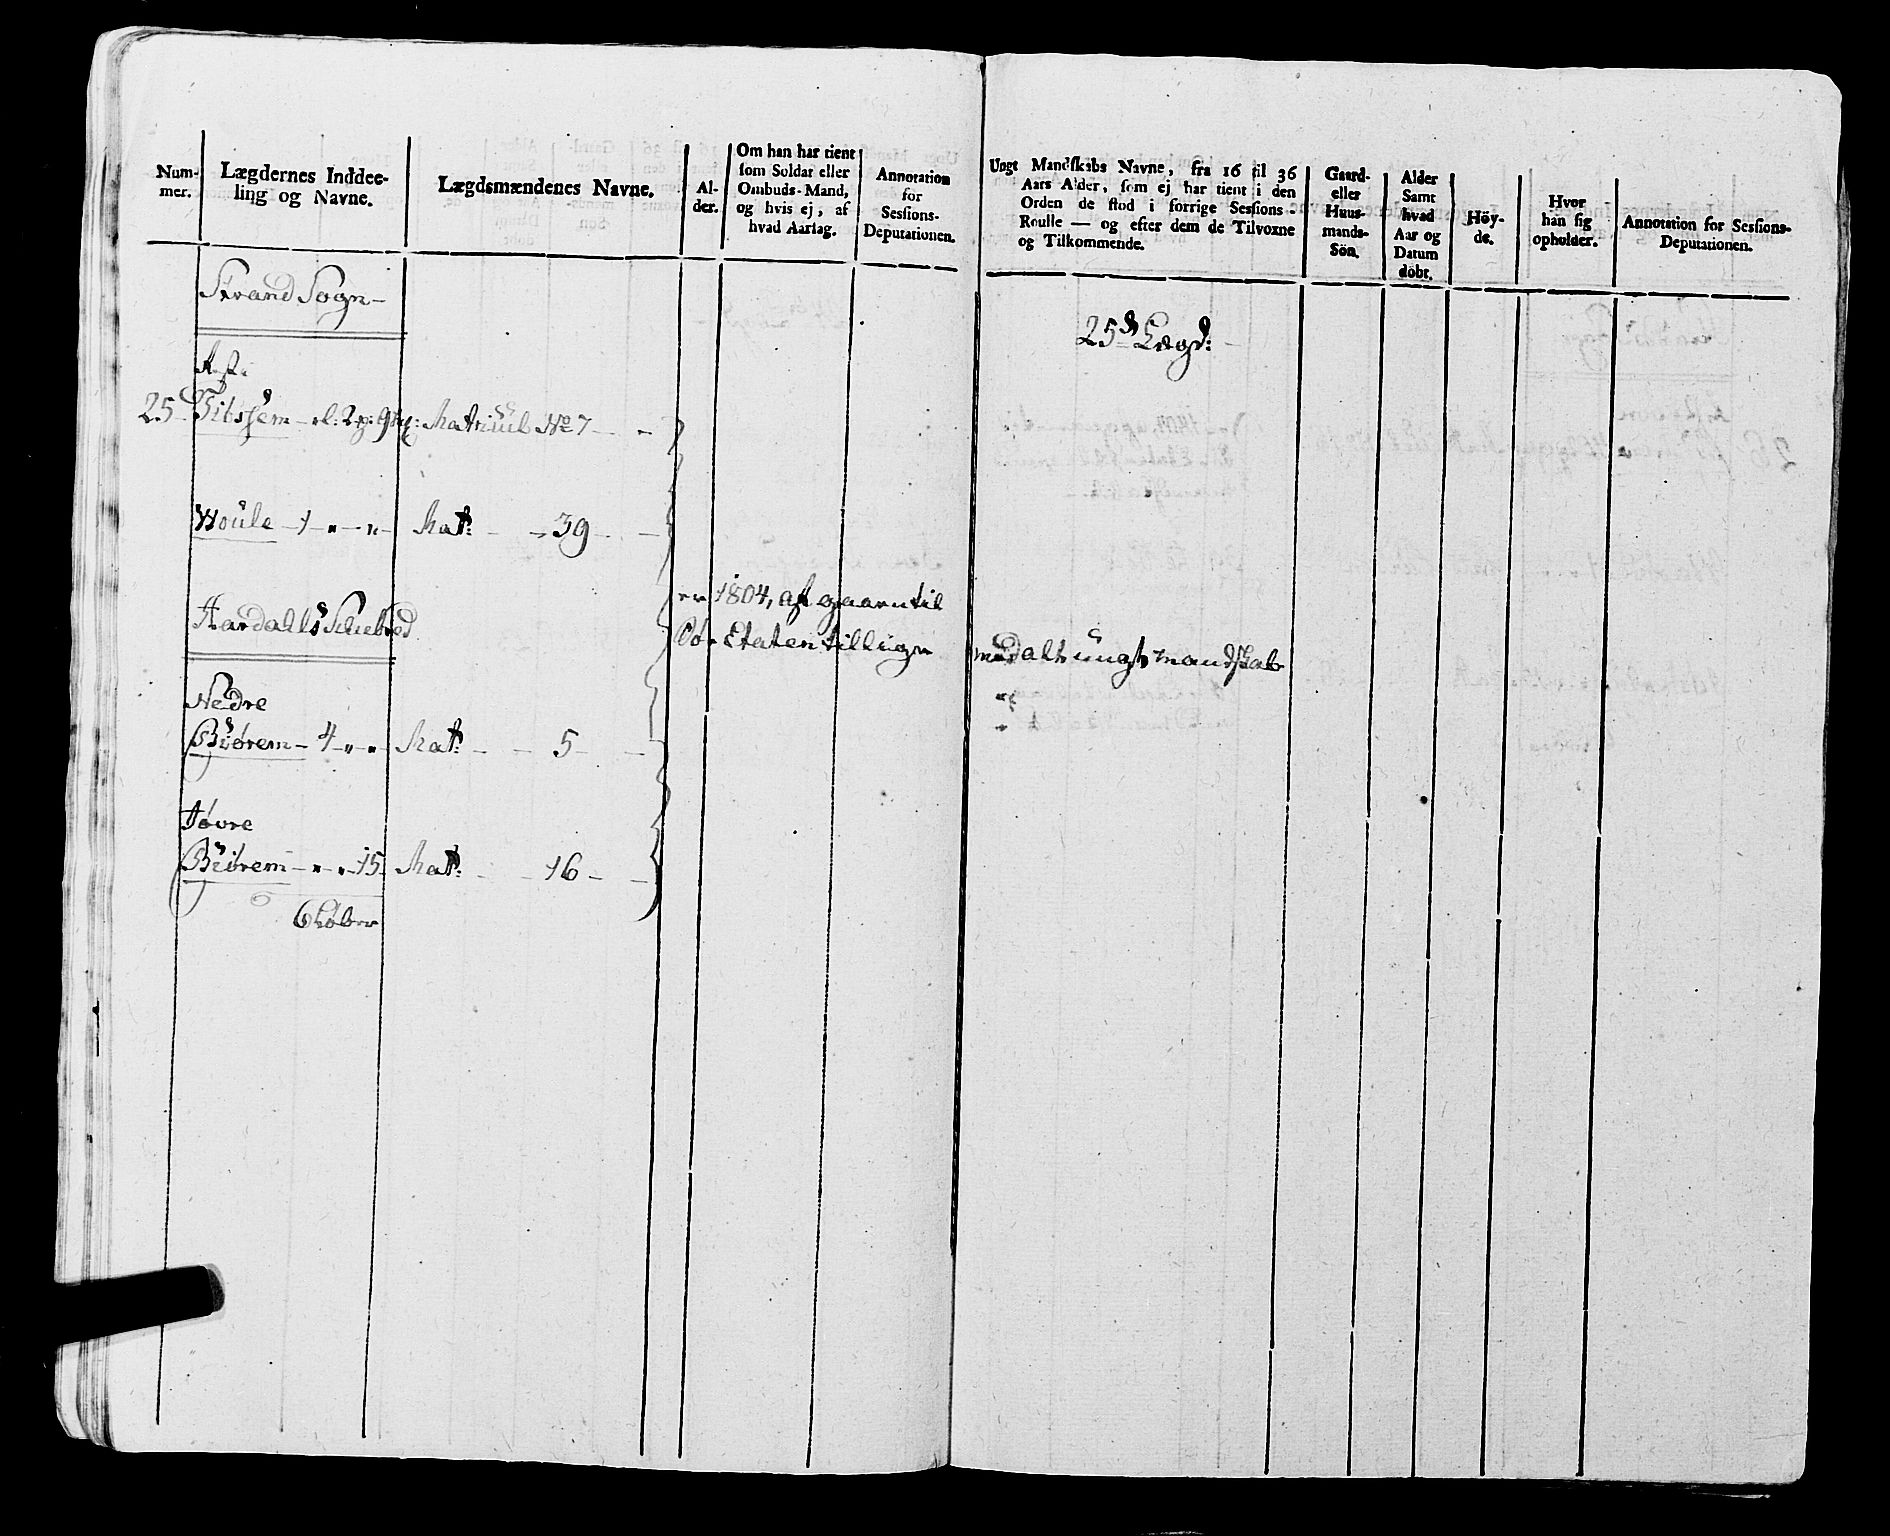 Num-
mer.
Lægdernes Inddee-
ling og Navne.
Lægdsmændenes Navne.
Al-
der.
Om han har tient
som Soldat eller
Ombuds-Mand,
og hvis ej, af
hvad Aarsag.
Annotation
for
Sessions-
Deputationen.
Ungt Mandskabs Navne, fra 16 til 36
Aars Alder, som ej har tient i den
Orden de stod i forrige Sessions-
Roulle — og efter dem de Tilvoxne
og Tilkommende.
Gaard-
eller
Huus-
mands-
Sön.
Alder
Samt
hvad
Aar og
Datum
döbt.
Höy-
de.
Hvor
han sig
opholder.
Annotation for Sessions-
Deputationen.
Strand Sogn
25de Lægd:
25 Matricul No 7
Woule 1 " " Mat: 39
er 1804, afgaaen til
Aardahls Schibred
Søe Etaten tilligemed alt ungt mandskab
Nedre
Biørem 4 " " Mat: 5
Tøvre
Biørem " " 15 Mat: 16
6 Løber